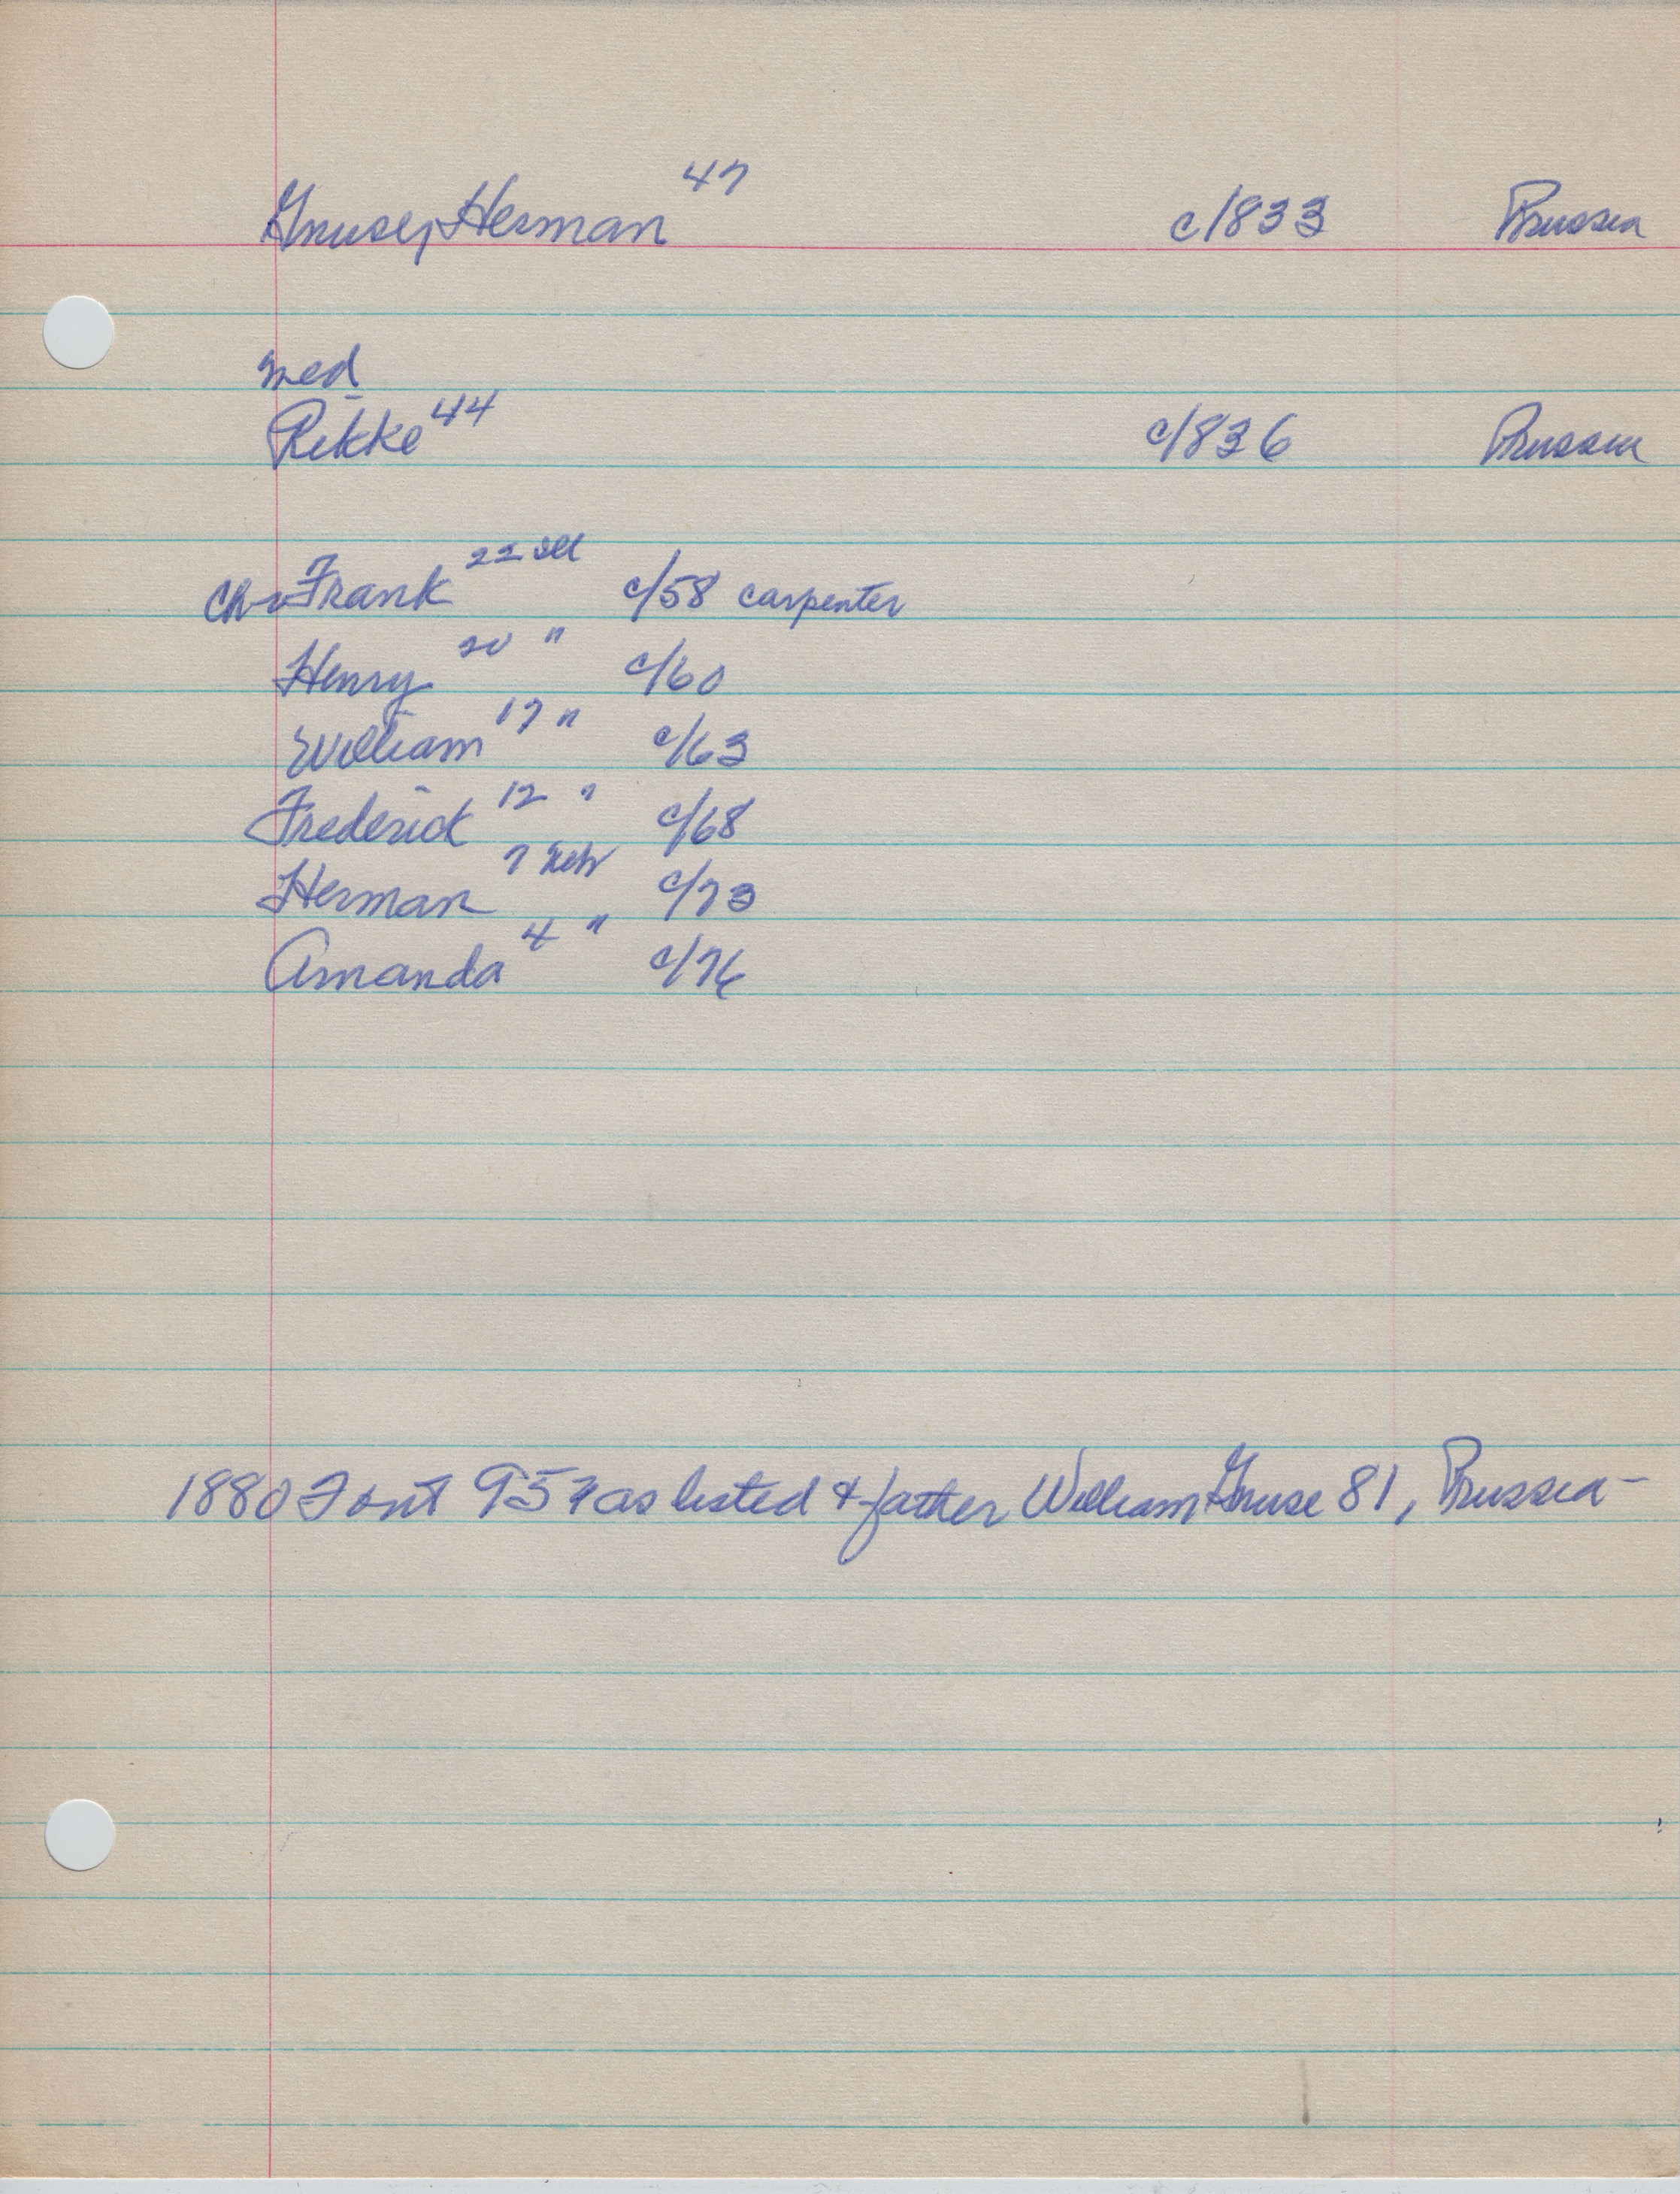 Gnuse, Herman 47 c/833 Prussia
med
Rikke 44 c/836 Prussia
Ch - Frank 22 Ill c/58 carpenter
Henry 20 " c/60
William 17 " c/63
Frederick 12 " c/68
Herman 7 Neb c/73
Amanda 4 " c/76
1880 Font 957 as listed & father William Gnuse 81, Prussia -